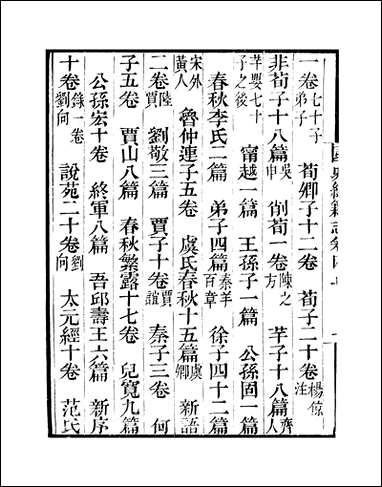 一卷七十子弟子　荀卿子十二卷　荀子二十卷楊倞注
非荀子十八篇吳申　削荀一卷陳之方　芊子十八篇齊人
芊嬰七十子之後　甯越一篇　王孫子一篇　公孫固一篇
春秋李氏二篇　弟子四篇秦羊百章　徐子四十二篇
宋外黃人　魯仲連子五卷　虞氏春秋十五篇虞卿　新語
二卷陸賈　劉敬三篇　賈子十卷賈誼　秦子三卷　何
子五卷　賈山八篇　春秋繁露十七卷　兒寬九篇
公孫宏十卷　終軍八篇　吾邱壽王六篇　新序
十卷錄一卷劉向　說苑二十卷劉向　太元經十卷　范氏